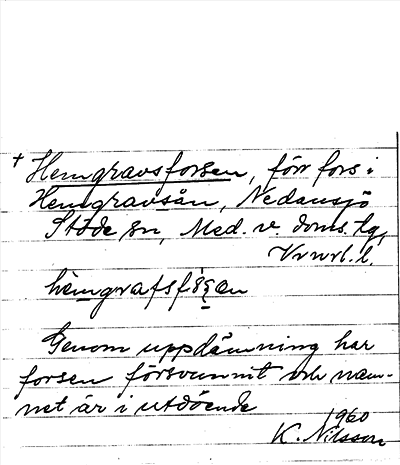 + Hemgravsforsen, förr fors i
Hemgravsån, Nedansjö
Stöde sn, Med. v. doms. tg,
Vrnrl. l.
hemgrafsf
Genom uppdämning har
forsen försvunnit och nam-
net är i utdöende
1960
K. Nilsson